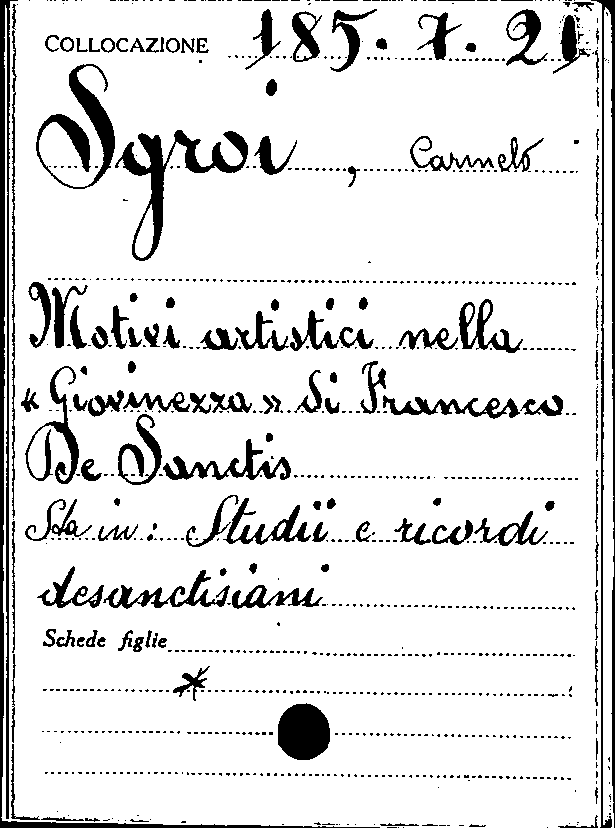 COLLOCAZIONE 185.7.21
Sgroi, Carmelo
Motivi artistici nella
« Giovinezza » di Francesco
De Sanctis
Sta in: Studii e ricordi
desanctisiani
Schede figlie
*